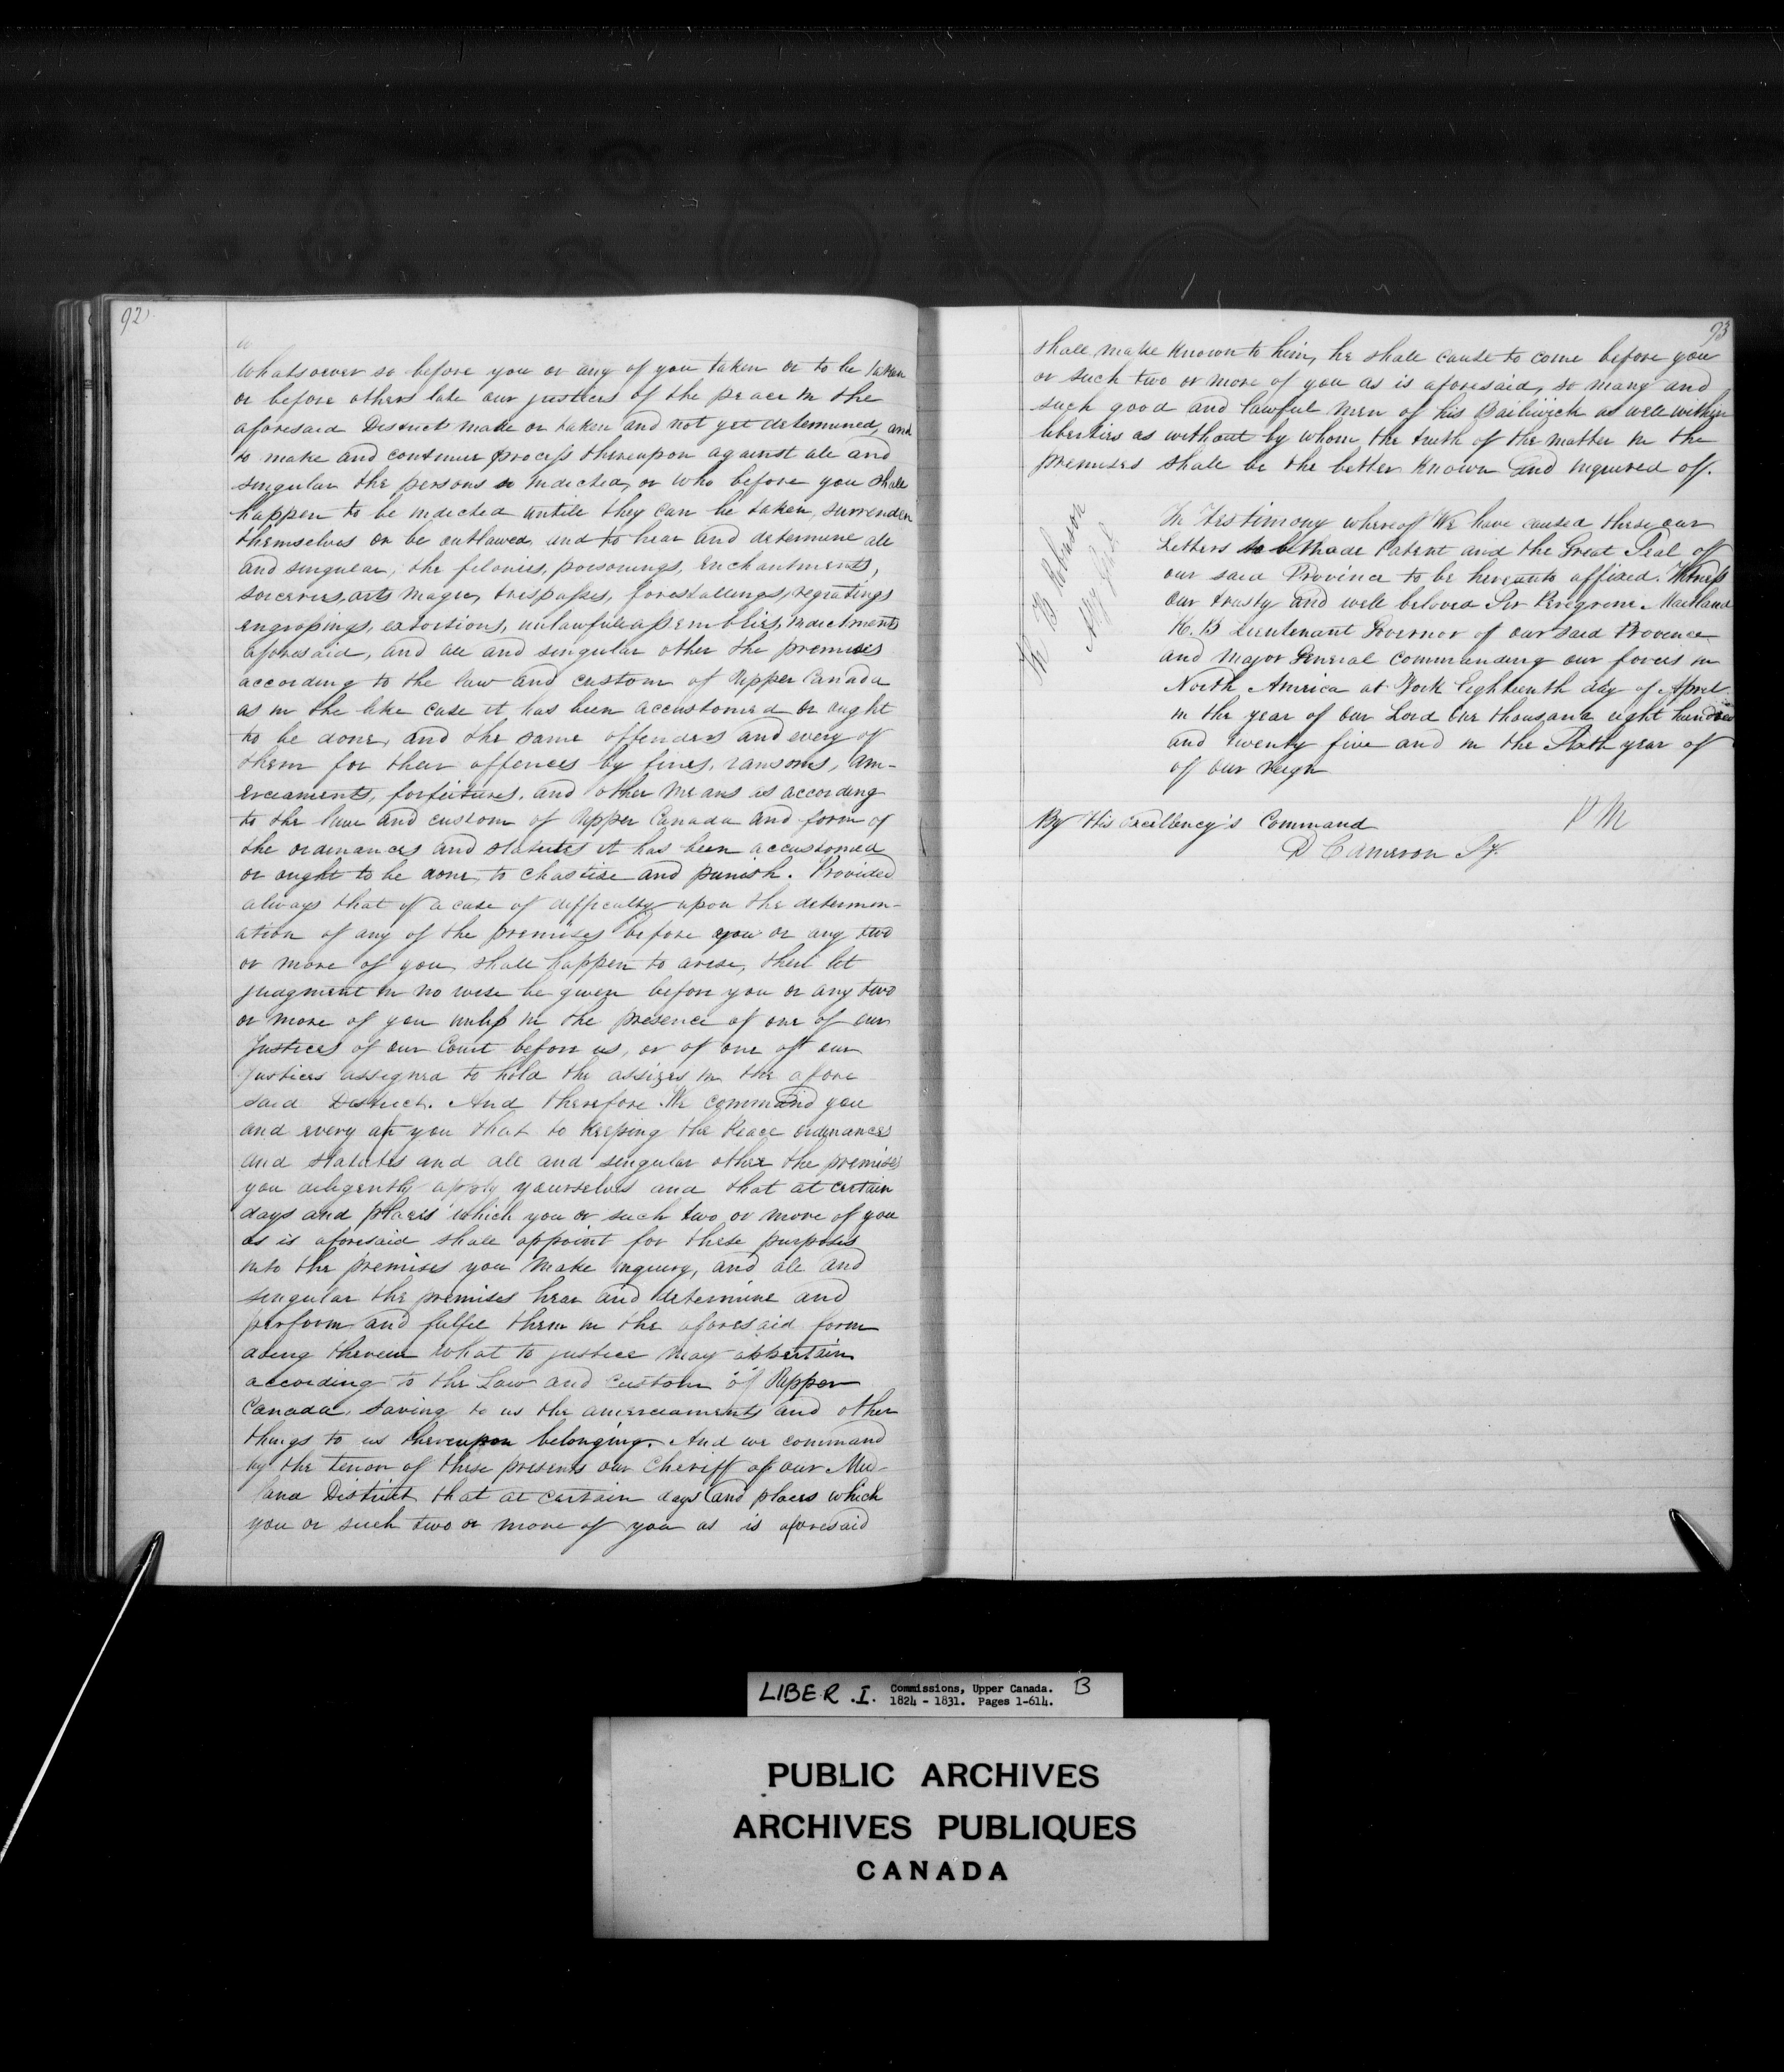 92
whatsoever so before you or any of you taken or to be taken
or before others late our justices of the peace in the
aforesaid District made or taken and not yet determined, and
to make and continue process thereupon against all and
singular the persons so indicted, or who before you shall
happen to be indicted untill they can be taken, surrender
themselves or be outlawed, and to hear and determine all
and singular, the felonies, poisonings, enchantments,
sorceries, arts magic, trespasses, forestallings, regratings
engrossings, extortions, unlawful assemblies, indictments
aforesaid, and all and singular other the premises
according to the law and custom of Upper Canada
as in the like case it has been accustomed or ought
to be done, and the same offenders and every of
them for their offences by fines, ransoms, am-
erciaments, forfeitures, and other means as according
to the law and custom of Upper Canada and form of
the ordinances and statutes it has been accustomed
or ought to be done, to chastise and punish. Provided
always that if a case of difficulty upon the determin-
ation of any of the premises before you or any two
or more of you, shall happen to arise, then let
judgment in no wise be given before you or any two
or more of you unless in the presence of one of our
Justices of our Court before us, or of one of our
justices assigned to hold the assizes in the afore
said District. And therefore We command you
and every of you that to keeping the Peace ordinances
and statutes and all and singular other the premises
you diligently apply yourselves and that at certain
days and places which you or such two or more of you
as is aforesaid shall appoint for these purposes
into the premises you make inquiry, and all and
singular the premises hear and determine and
perform and fulfil them in the aforesaid form
doing therein what to justice may appertain
according to the Law and custom of Upper
Canada, saving to us the amerciaments and other
things to us thereupon belonging. And we command
by the tenor of these presents our Cheriff of our Mid-
land District that at certain days and places which
you or such two or more of you as is aforesaid
93
shall make known to him, he shall cause to come before you
or such two or more of you as is aforesaid, so many and
such good and lawful men of his Bailiwick as well within
liberties as without by whom the truth of the matter in the
premises shall be the better known and inquired off.
In Testimony whereof We have caused these our
Letters to be Made Patent and the Great Seal of
our said Province to be hereunto affixed. Witness
our trusty and well beloved Sir Peregrine Maitland
K. B Lieutenant Governor of our said Province
and Major General commanding our forces in
North America at York Eighteenth day of April
in the year of our Lord One thousand eight hundred
and twenty five and in the Sixth year of
of our reign
B Robinson
Atty Genl
P M
By His Excellency's Command
D Cameron Sy.
LIBER .I. Commissions, Upper Canada. B
1824 - 1831. Pages 1-614.
PUBLIC ARCHIVES
ARCHIVES PUBLIQUES
CANADA